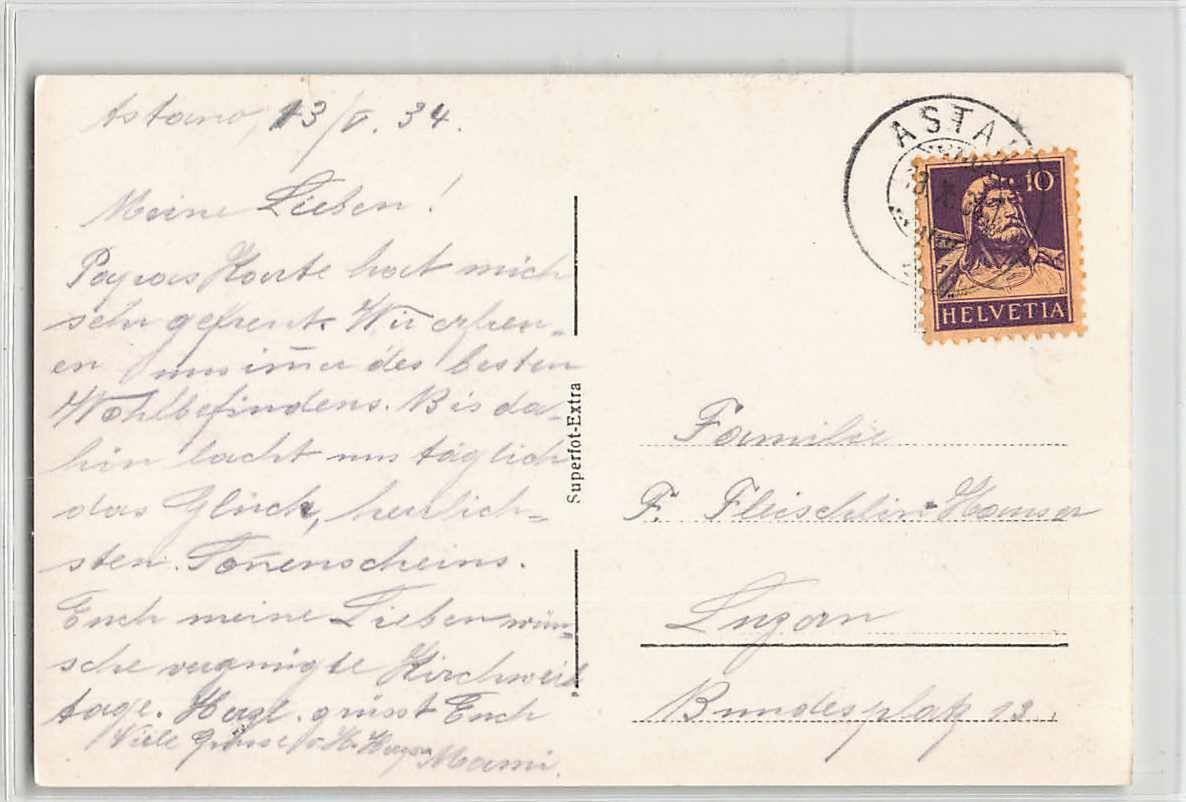 Astano, 13/V. 34.
Meine Lieben!
Papas Karte hat mich
sehr gefreut. Wir erfreu-
en uns im̄er des besten
Wohlbefindens. Bis da-
hin lacht uns täglich
das Glück, herrlich-
sten Son̄enscheins.
Euch meine Lieben wün-
sche vergnügte Kirchweih
tage. Herzl. grüsst Euch
Viele Grüsse v. H.
Mami.
Superfot-Extra
ASTA
10
HELVETIA
Familie
F. Fleischlin-Hauser
Luzern
Bundesplatz 13.